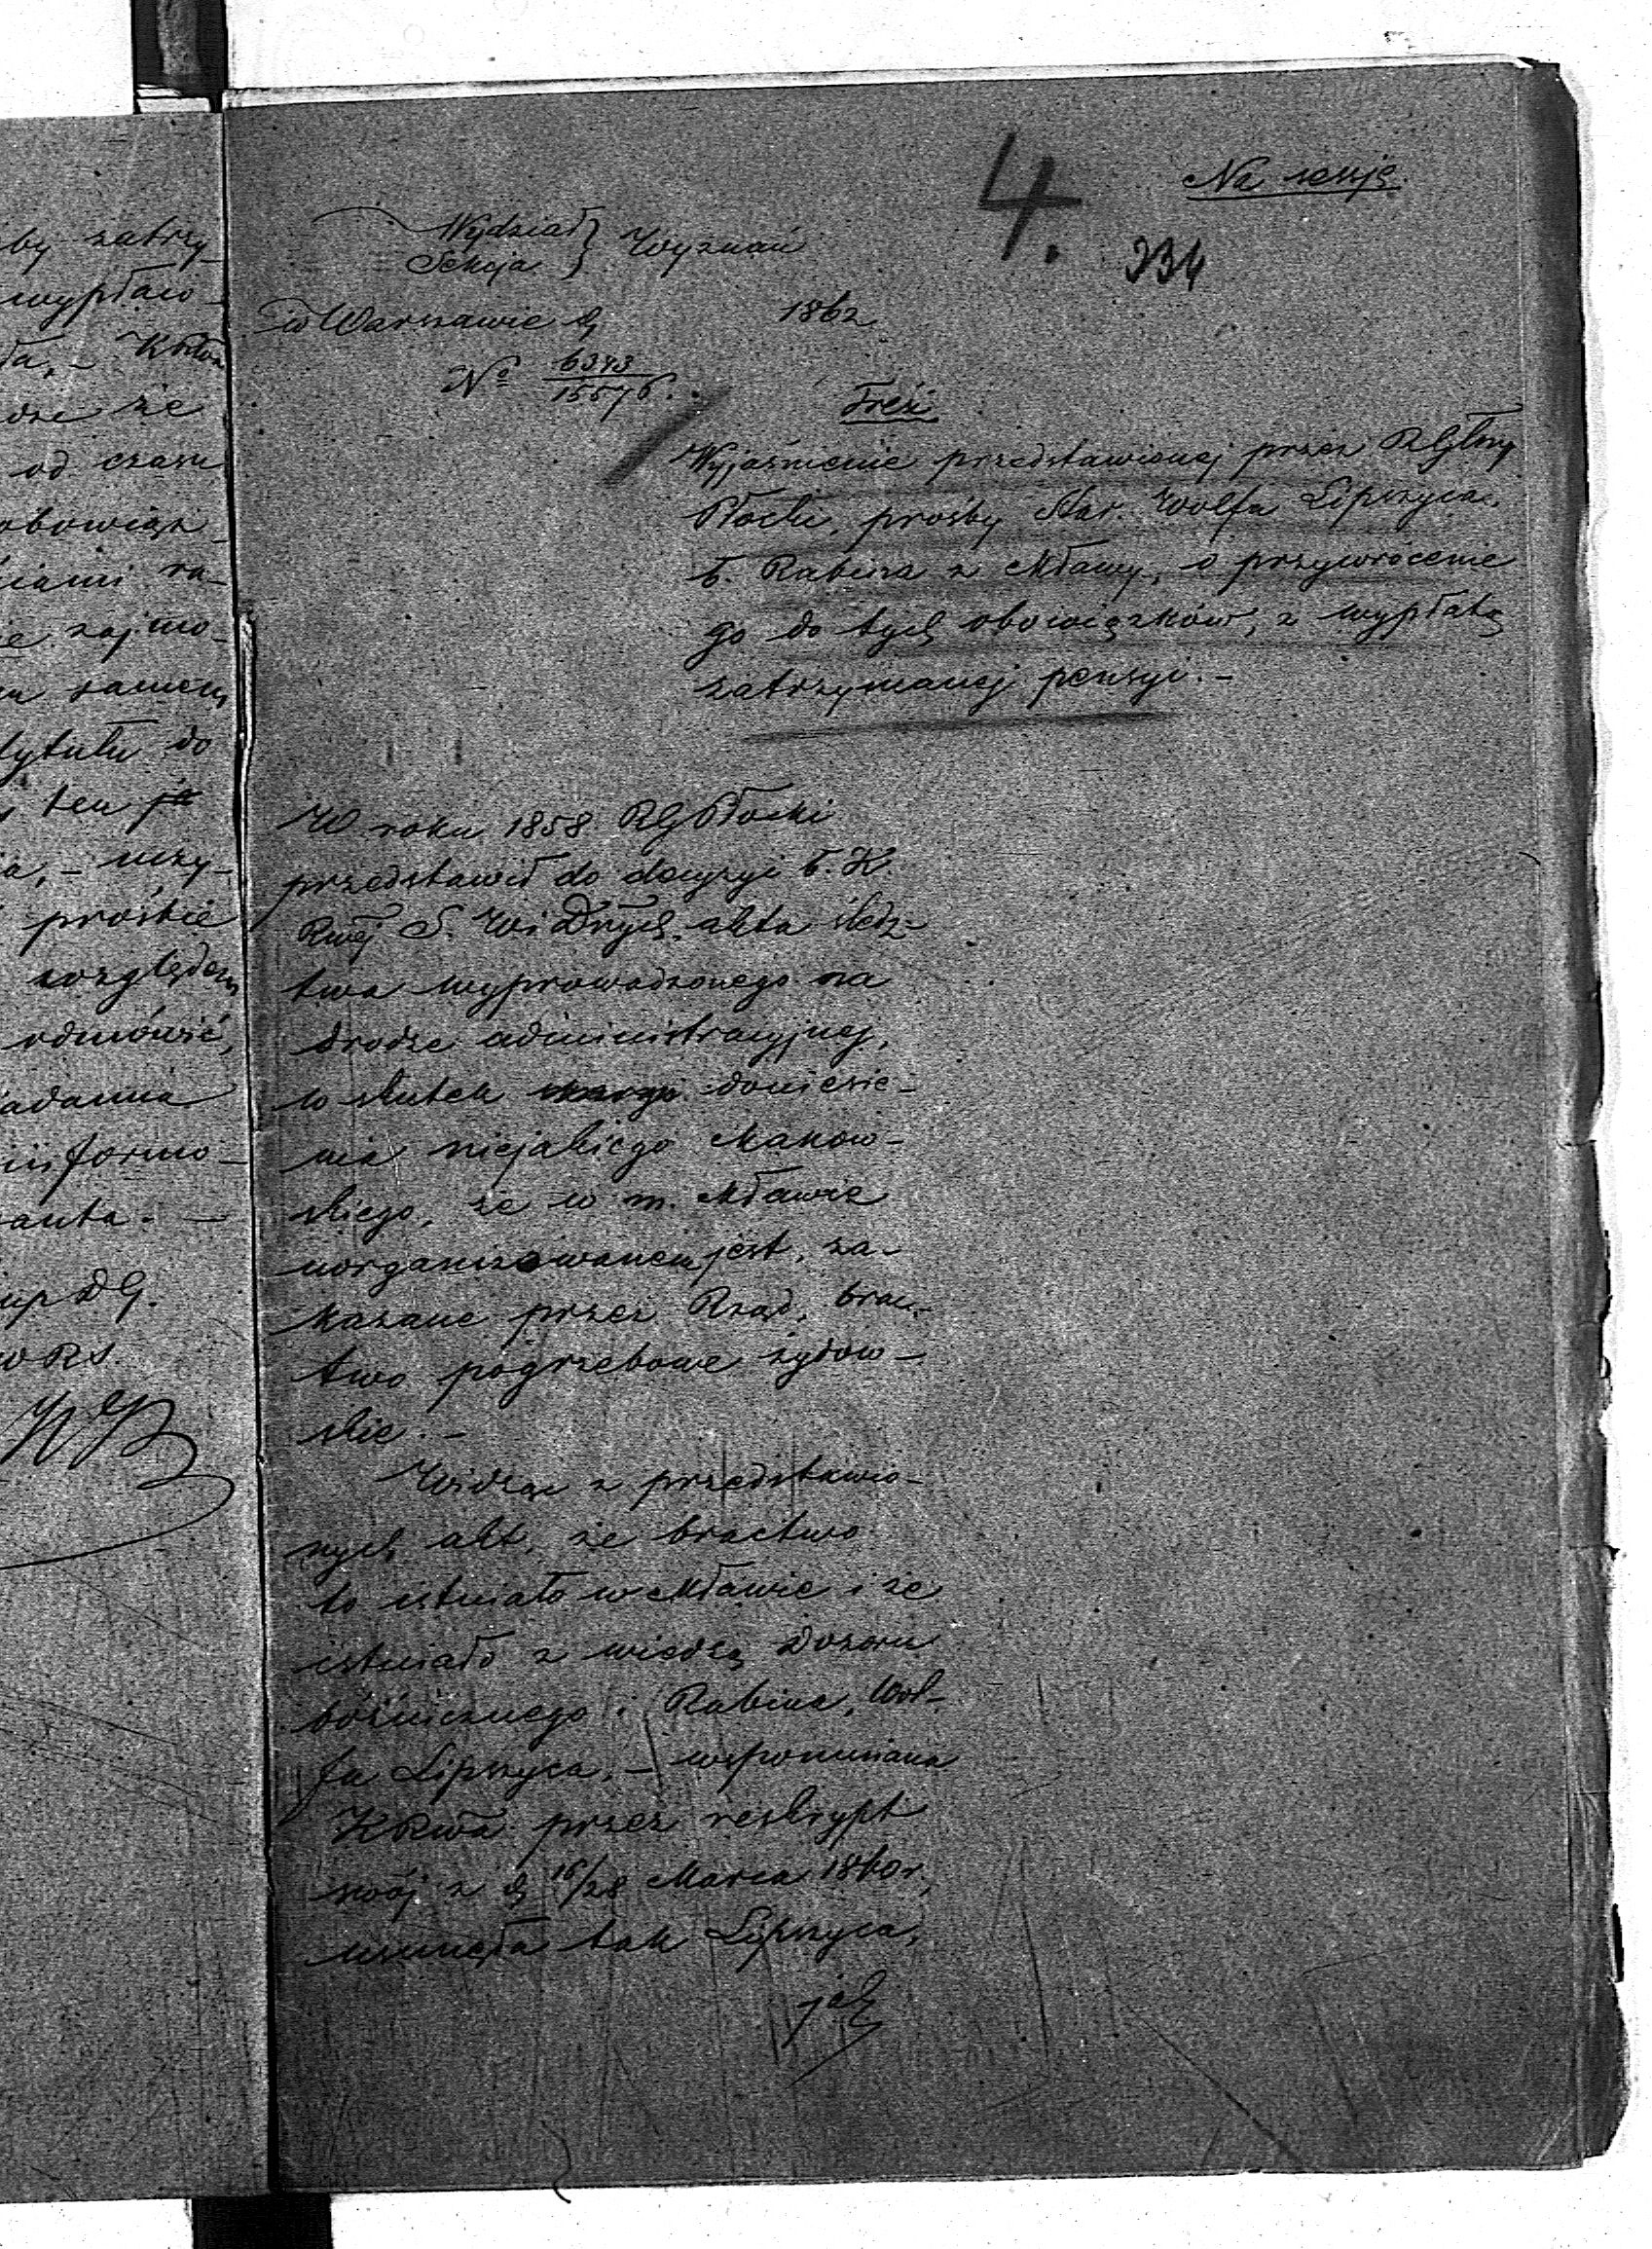 by zatrzy_
wypłaco_
ła, – KRtor
dze że
od czasu
obowiąz_
ciami ra_
ie zajmo_
m samem
tytułu do
ten
a, – uczy_
prośbie
względem
odmówić,
adamia
informo_
anta. –
up DG.
WRS.
4.
Na sessję.
334
Wydział } Wyznań
Sekcja }
w Warszawie d. 1862
No 6343/15576.
Treść
Wyjaśnienie przedstawionej przez RGłny
Płocki, prośby Star. Wolfa Lipszyca,
b. Rabina z Mławy, o przywrócenie
go do tych obowiązków, z wypłatą
zatrzymanej pensyi. –
W roku 1858 RGPłocki
przedstawił do decyzyi b. K.
Rwej S. W i Dnych. akta śledz-
twa wyprowadzonego na
drodze administracyjnej,
w skutek skargi doniesie_
nia niejakiego Makow_
skiego, że w m. Mławie
uorganizowanem jest, za_
kazane przez Rząd, brac_
two pogrzebowe żydow_
skie. –
Widząc z przedstawio_
nych akt, że bractwo
to istniało w Mławie i że
istniało z wiedzą Dozoru
bóźniczego i Rabina, Wol_
fa Lipszyca, – wspomniana
KRwa przez reskrypt
swój z d. 16/28 Marca 1860 r.,
usunęła tak Lipszyca,
jak